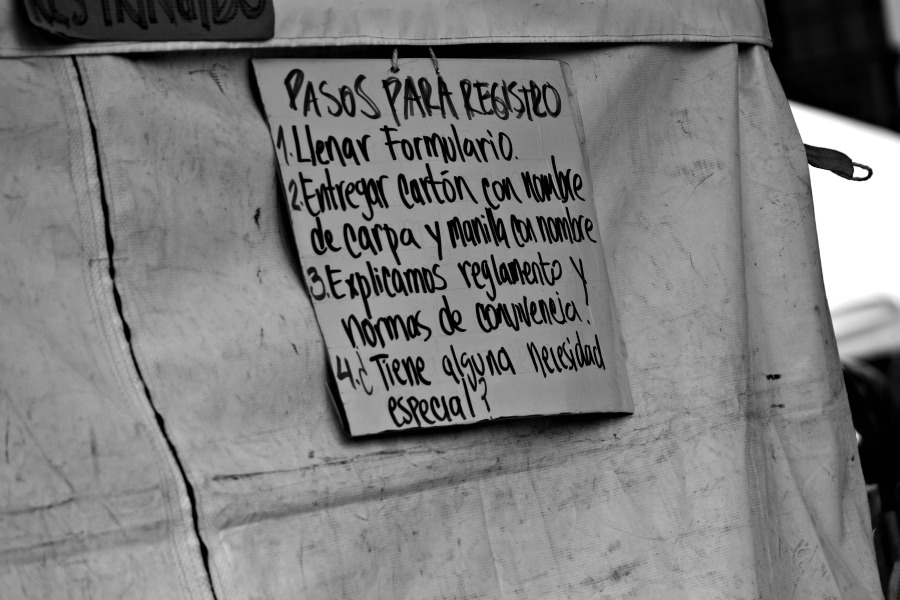 PASOS PARA REGISTRO
1. Llenar Formulario.
2. Entregar cartón con nombre
de carpa y manilla con nombre
3. Explicamos reglamento y
normas de convivencia.
4. ¿Tiene alguna necesidad
especial?